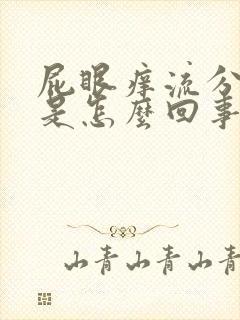 屁眼痒流分
是怎麼回事
山青山青山青